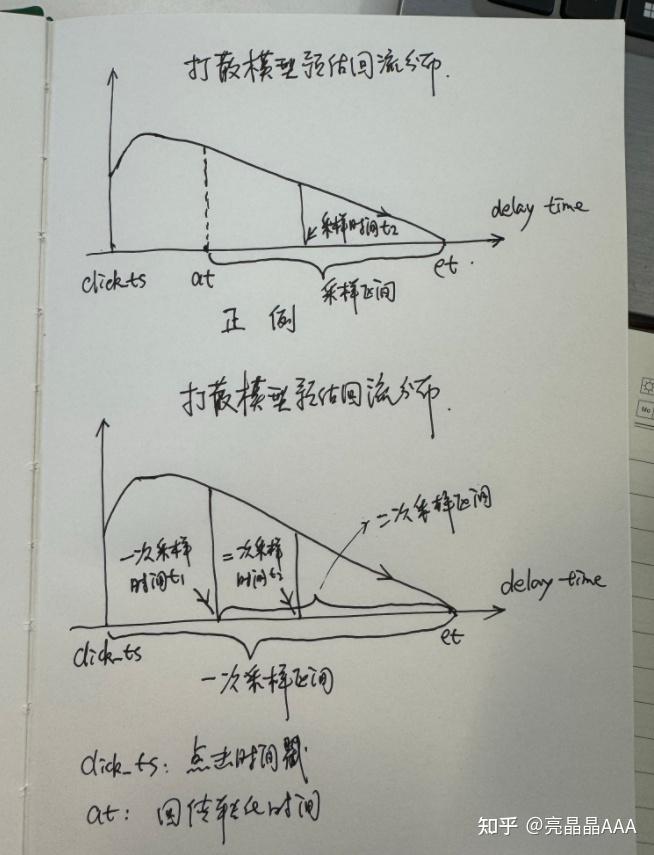 打散模型预估回流分布.
delay time
采样时间t₂
click_ts
at
et.
采样区间
正例
打散模型预估回流分布.
二次采样区间
一次采样
时间t₁
二次采样
时间t₂
delay time
click_ts
et
一次采样区间
click_ts: 点击时间戳
at: 回传转化时间
知乎 @亮晶晶AAA